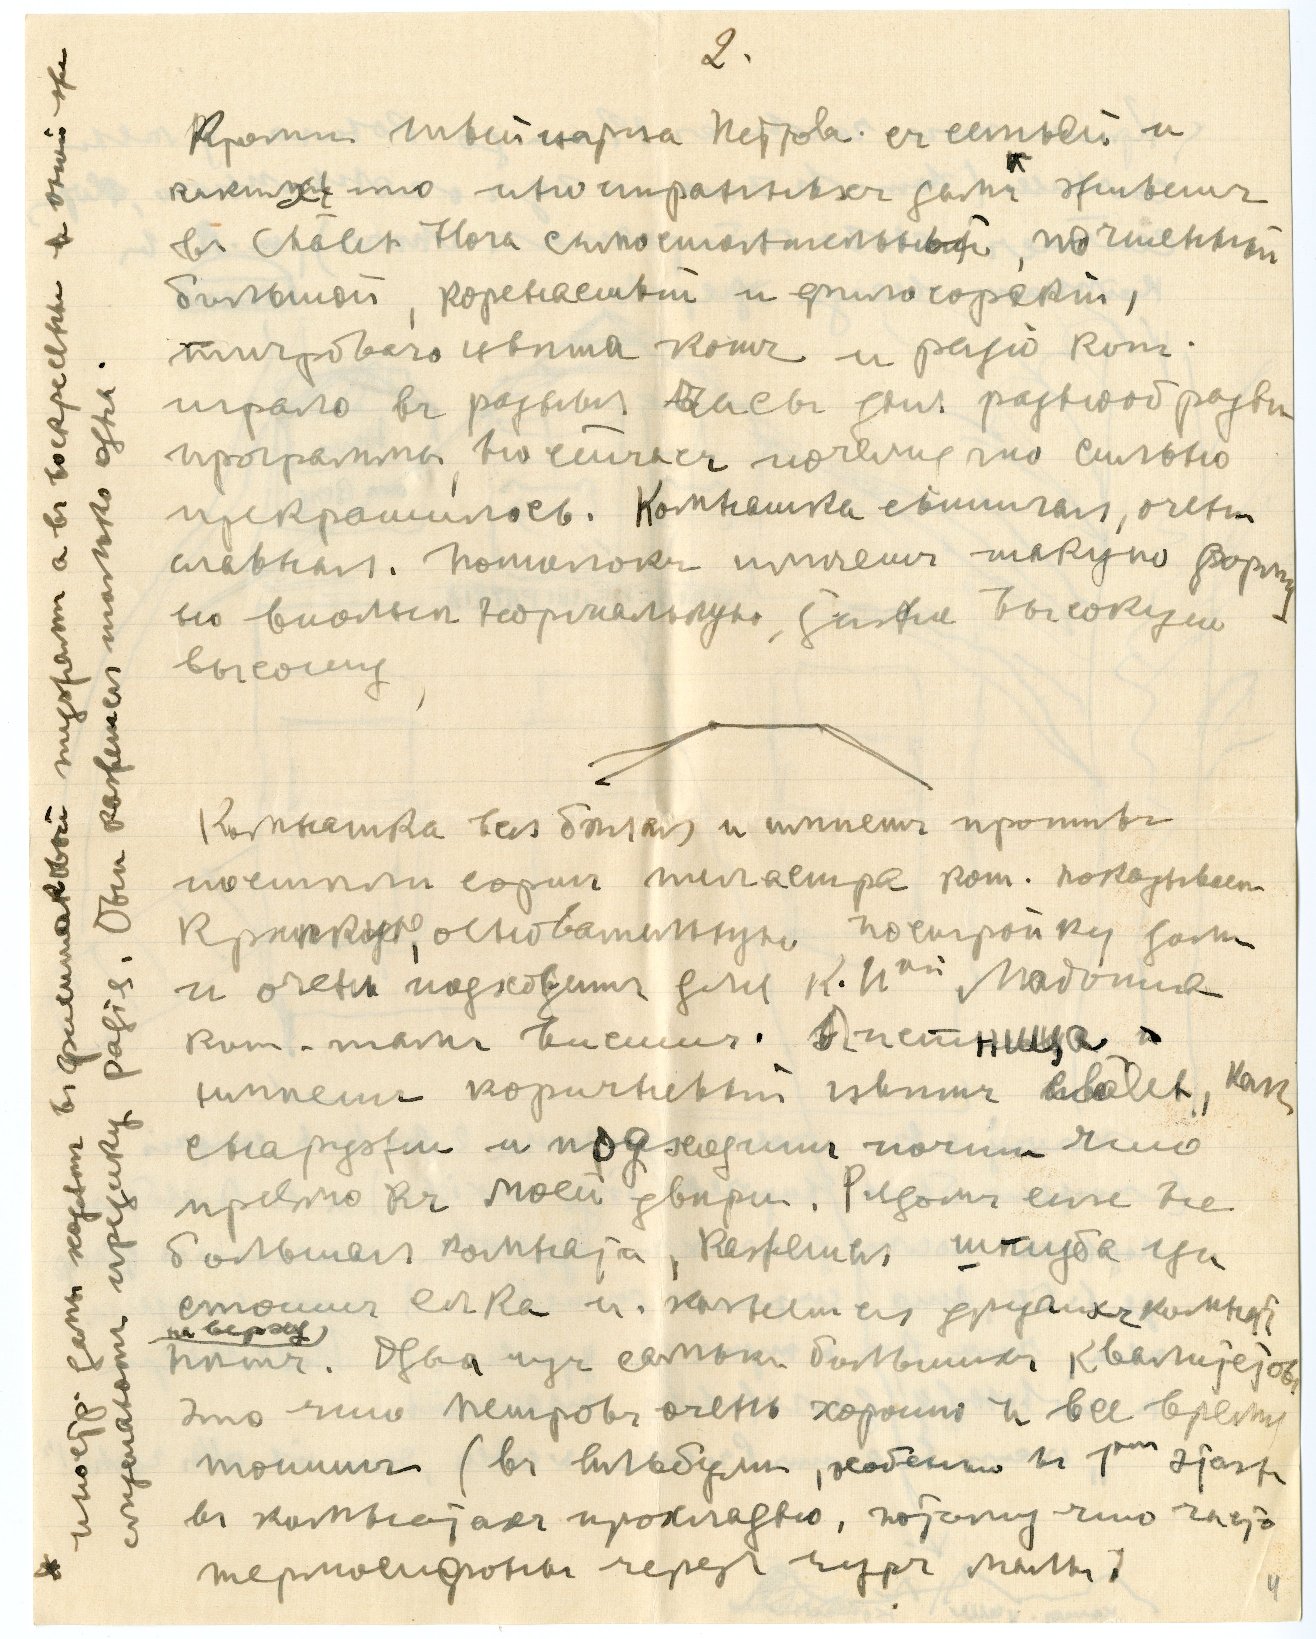 2.
Кромѣ швейцарца Петрова съ семьей и
какихъ то иностранныхъ дамъ* живетъ
въ Châlet Нога самостоятельный, почтенный
большой, коренастый и философскій,
тигроваго цвѣта котъ и радіо кот.
играло въ разные часы дня разнообразныя
программы, но сейчасъ почему то сильно
прекратилось. Комнатка свѣтлая, очень
славная. Потолокъ имѣетъ такую форму
но вполнѣ нормальную, даже высокую
высоту,
Комнатка вся бѣлая и имѣетъ противъ
постели сортъ пилястра кот. показываетъ
крѣпкую, основательную постройку дома
и очень подходитъ для К. И ной Мадонны
кот. тамъ виситъ. Лѣстница и
имѣетъ коричневый цвѣтъ châlet, какъ
снаружи и подходитъ почти что
прямо къ моей двери. Рядомъ еще не
большая комната, кажется штуба гдѣ
стоитъ елка и. кажется другихъ комнатъ
на верху
нѣтъ. Одна изъ самыхъ большихъ
это что Петровъ очень хорошо и все время
топитъ (въ особенно въ эта
въ комнатахъ прохладно, потому что часто
термосифоны черезъ чуръ малы)
* иностр. дамы ходятъ въ а въ воскресенье и онѣ же
слушаютъ радіо. Обѣ кажется только одна.